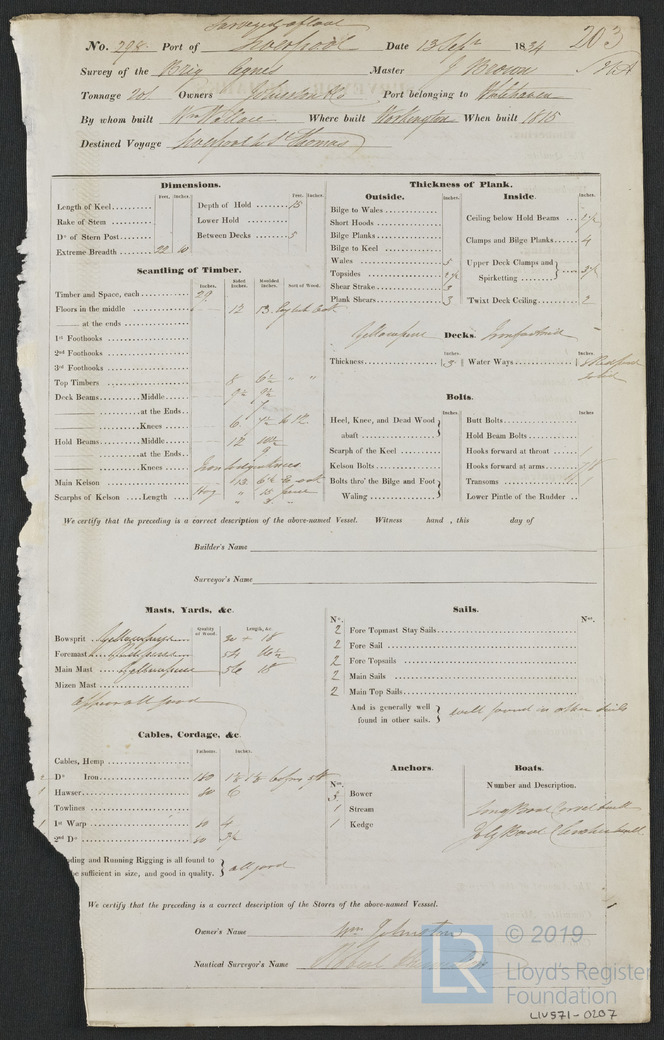 Surveyed afloat
No. 298 Port of Liverpool Date 13 Sept 1834 203
Survey of the Brig Agnes Master J Brown
Tonnage 201 Owners Johnston & Co Port belonging to Whitehaven
By whom built Wm Wallace Where built Workington When built 1815
Destined Voyage Liverpool to St Thomas
Dimensions.
Feet. Inches.
Length of Keel
Rake of Stem
Do of Stern Post
Extreme Breadth 22 10
Feet. Inches.
Depth of Hold 15
Lower Hold
Between Decks 5
Scantling of Timber.
Inches. Sided Inches. Moulded Inches. Sort of Wood.
Timber and Space, each
Floors in the middle 12 13 English Oak
—— at the ends
1st Foothooks
2nd Foothooks
3rd Foothooks
Top Timbers 8 6½ " "
Deck Beams Middle 9½ 9½
—— at the Ends 7
—— Knees 6 7½ to 12
Hold Beams Middle 12 10½
—— at the Ends 9
—— Knees Iron lodging knees
Main Kelson
Scarphs of Kelson Length
Thickness of Plank.
Outside.
Inches.
Bilge to Wales
Short Hoods
Bilge Planks
Bilge to Keel
Wales 5
Topsides 2½
Shear Strake 3
Plank Shears 3
Inside.
Inches.
Ceiling below Hold Beams
Clamps and Bilge Planks 4
Upper Deck Clamps and Spirketting
Twixt Deck Ceiling 2
Yellow pine Decks. Iron fastened
Thickness 3 Inches
Water Ways Inches
Bolts.
Inches.
Heel, Knee, and Dead Wood abaft
Scarph of the Keel
Kelson Bolts
Bolts thro' the Bilge and Foot Waling
Inches
Butt Bolts
Hold Beam Bolts
Hooks forward at throat 1
Hooks forward at arms 7/8
Transoms 1
Lower Pintle of the Rudder
We certify that the preceding is a correct description of the above-named Vessel. Witness hand , this day of
Builder's Name
Surveyor's Name
Masts, Yards, &c.
Quality of Wood. Length, &c.
Bowsprit Yellow pine 30 + 18
Foremast 54 16½
Main Mast Yellow pine 56 18
Mizen Mast
Appear all good
Sails.
No. No.
2 Fore Topmast Stay Sails
2 Fore Sail
2 Fore Topsails
2 Main Sails
2 Main Top Sails
And is generally well found in other sails. well found in other sails
Cables, Cordage, &c.
Fathoms. Inches.
Cables, Hemp
Do Iron
Hawser 80 6
Towlines
1st Warp 80 4
2nd Do 80 3½
ding and Running Rigging is all found to be sufficient in size, and good in quality. all good
Anchors.
No.
3 Bower
1 Stream
1 Kedge
Boats.
Number and Description.
Long Boat Carvel built
Jolly Boat Clincher built
We certify that the preceding is a correct description of the Stores of the above-named Vesssel.
Owner's Name Wm Johnston
Nautical Surveyor's Name
© 2019
LR
Lloyd's Register
Foundation
LIV571-0207